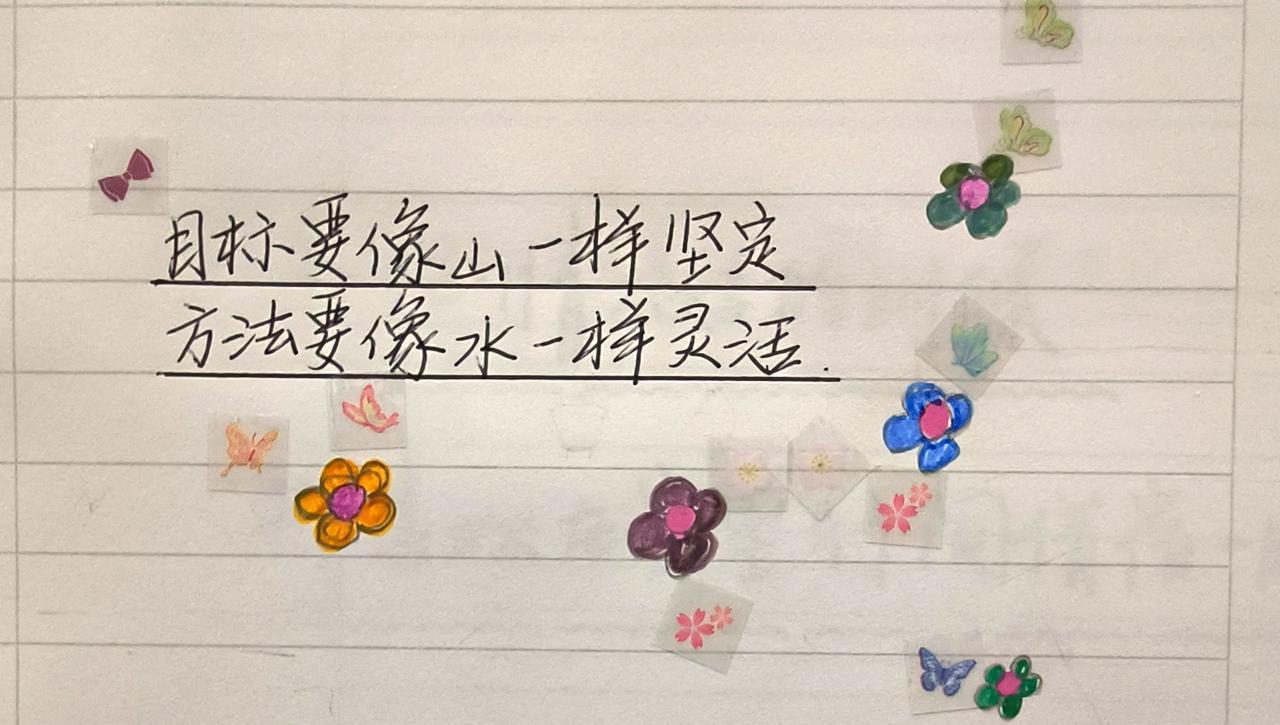 目标要像山一样坚定
方法要像水一样灵活.